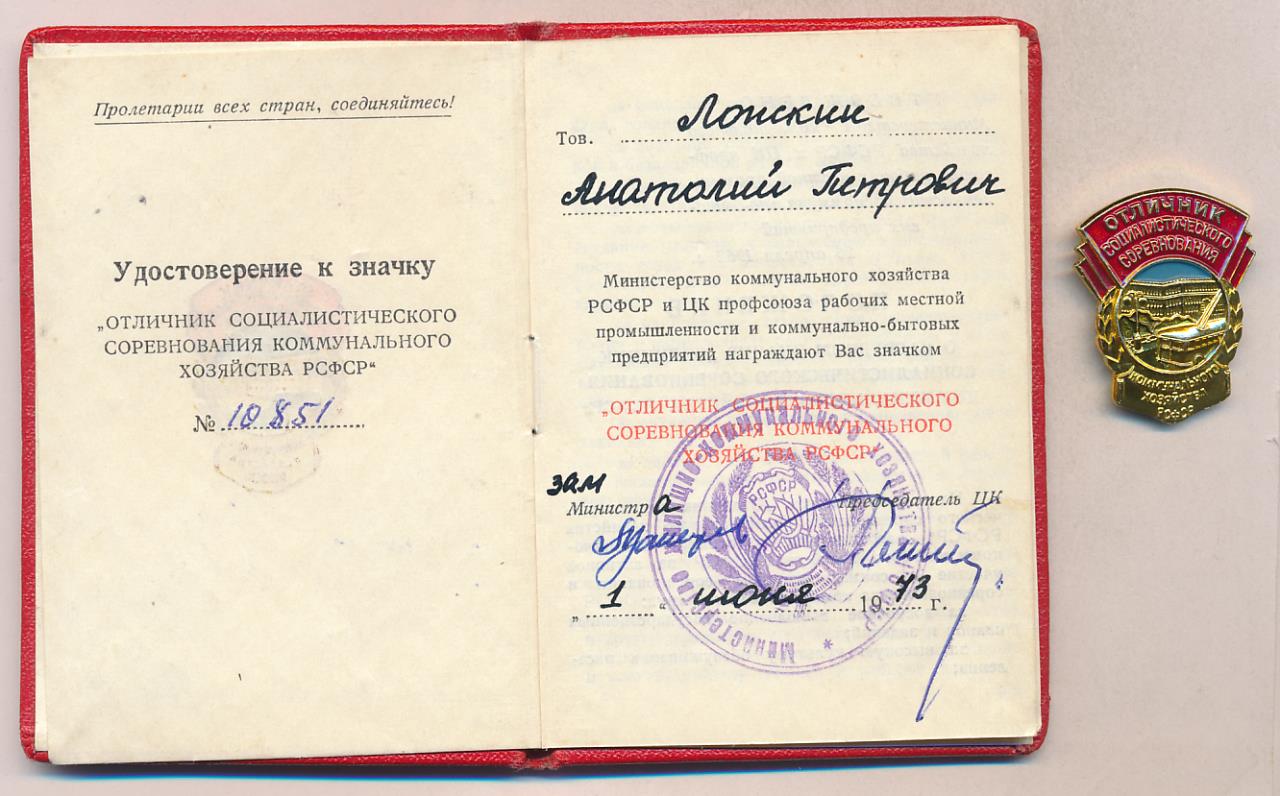 Пролетарии всех стран, соединяйтесь!
Удостоверение к значку
„ОТЛИЧНИК СОЦИАЛИСТИЧЕСКОГО
СОРЕВНОВАНИЯ КОММУНАЛЬНОГО
ХОЗЯЙСТВА РСФСР“
№ 10851
Тов. Лонский
Анатолий Петрович
Министерство коммунального хозяйства
РСФСР и ЦК профсоюза рабочих местной
промышленности и коммунально-бытовых
предприятий награждают Вас значком
„ОТЛИЧНИК СОЦИАЛИСТИЧЕСКОГО
СОРЕВНОВАНИЯ КОММУНАЛЬНОГО
ХОЗЯЙСТВА РСФСР“
зам
Министра Председатель ЦК
„ 1 “ июня 1973 г.
МИНИСТЕРСТВО ЖИЛИЩНО-КОММУНАЛЬНОГО ХОЗЯЙСТВА РСФСР
РСФСР
ОТЛИЧНИК
СОЦИАЛИСТИЧЕСКОГО
СОРЕВНОВАНИЯ
КОММУНАЛЬНОГО
ХОЗЯЙСТВА
РСФСР